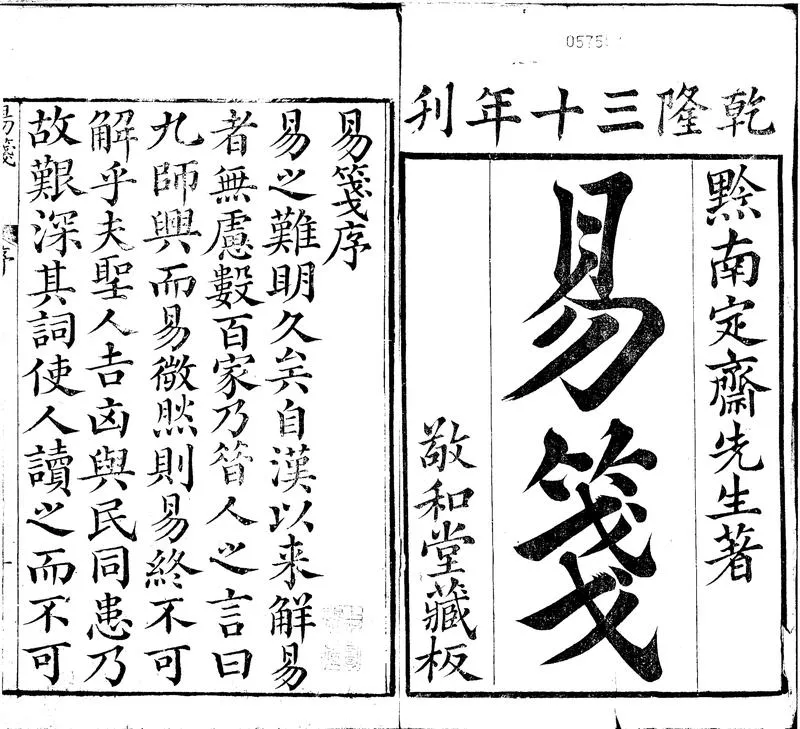 乾隆三十年刊
黔南定齋先生著
易箋
敬和堂藏板
易箋序
易之難明久矣自漢以来解易
者無慮數百家乃昝人之言曰
九師興而易微然則易終不可
解乎夫聖人吉凶與民同患乃
故艱深其詞使人讀之而不可
易箋
序